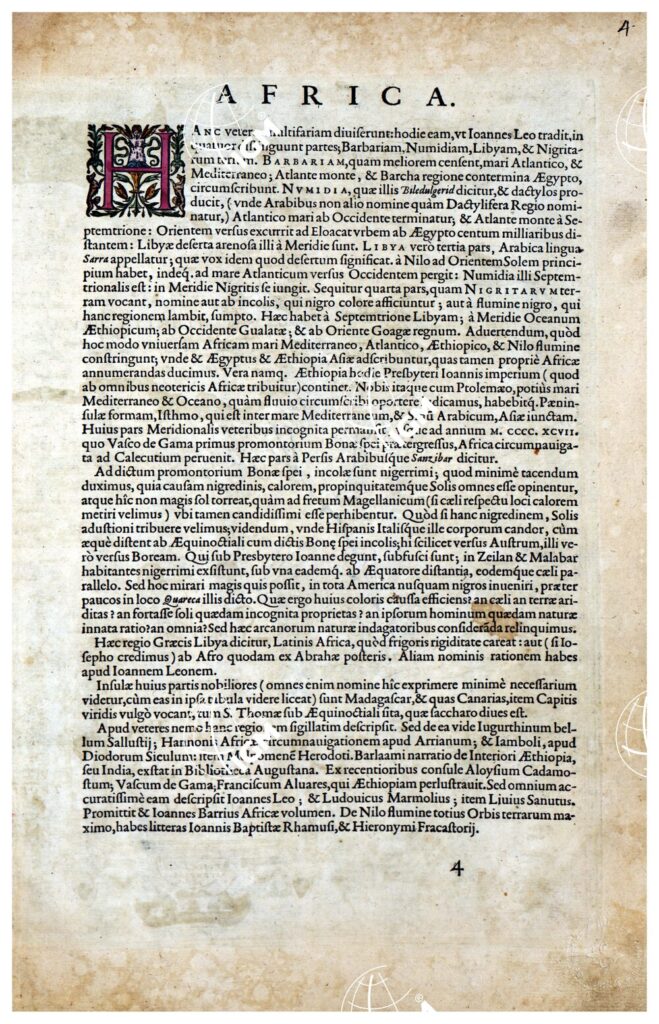 4
AFRICA.
HANC veter multifariam diuiserunt: hodie eam, vt Ioannes Leo tradit, in
quatuor distinguunt partes, Barbariam, Numidiam, Libyam, & Nigrita-
rum terram. BARBARIAM, quam meliorem censent, mari Atlantico, &
Mediterraneo; Atlante monte, & Barcha regione contermina Ægypto,
circumscribunt. NVMIDIA, quæ illis Biledulgerid dicitur, & dactylos pro-
ducit, (vnde Arabibus non alio nomine quàm Dactylifera Regio nomi-
natur,) Atlantico mari ab Occidente terminatur; & Atlante monte à Se-
ptemtrione: Orientem versus excurrit ad Eloacat vrbem ab Ægypto centum milliaribus di-
stantem: Libyæ deserta arenosa illi à Meridie sunt. LIBYA verò tertia pars, Arabica lingua
Sarra appellatur; quæ vox idem quod desertum significat. à Nilo ad Orientem Solem princi-
pium habet, indeq. ad mare Atlanticum versus Occidentem pergit: Numidia illi Septem-
trionalis est: in Meridie Nigritis se iungit. Sequitur quarta pars, quam NIGRITARVM ter-
ram vocant, nomine aut ab incolis, qui nigro colore afficiuntur; aut à flumine nigro, qui
hanc regionem lambit, sumpto. Hæc habet à Septemtrione Libyam; à Meridie Oceanum
Æthiopicum; ab Occidente Gualatæ; & ab Oriente Goagæ regnum. Aduertendum, quòd
hoc modo vniuersam Africam mari Mediterraneo, Atlantico, Æthiopico, & Nilo flumine
constringunt; vnde & Ægyptus & Æthiopia Asiæ adscribuntur, quas tamen propriè Africæ
annumerandas ducimus. Vera namq. Æthiopia hodie Presbyteri Ioannis imperium (quod
ab omnibus neotericis Africæ tribuitur) continet. Nobis itaque cum Ptolemæo, potiùs mari
Mediterraneo & Oceano, quàm fluuio circumscribi oportere iudicamus, habebitq. Pænin-
sulæ formam, Isthmo, qui est inter mare Mediterraneum, & Sinū Arabicum, Asiæ iunctam.
Huius pars Meridionalis veteribus incognita permansit, vsque ad annum M. CCCC. XCVII.
quo Vasco de Gama primus promontorium Bonæ spei prætergressus, Africa circumnauiga-
ta ad Calecutium peruenit. Hæc pars à Persis Arabibusque Sanzibar dicitur.
Ad dictum promontorium Bonæ spei, incolæ sunt nigerrimi; quod minimè tacendum
duximus, quia causam nigredinis, calorem, propinquitatemque Solis omnes esse opinentur,
atque hîc non magis sol torreat, quàm ad fretum Magellanicum (si cæli respectu loci calorem
metiri velimus) vbi tamen candidissimi esse perhibentur. Quòd si hanc nigredinem, Solis
adustioni tribuere velimus; videndum, vnde Hispanis Italisque ille corporum candor, cùm
æquè distent ab Æquinoctiali cum dictis Bonę spei incolis; hi scilicet versus Austrum, illi ve-
rò versus Boream. Qui sub Presbytero Ioanne degunt, subfusci sunt; in Zeilan & Malabar
habitantes nigerrimi existunt, sub vna eademq. ab Æquatore distantia, eodemque cæli pa-
rallelo. Sed hoc mirari magis quis possit, in tota America nusquam nigros inueniri, præter
paucos in loco Quareca illis dicto. Quæ ergo huius coloris caussa efficiens? an cæli an terræ ari-
ditas? an fortasse soli quædam incognita proprietas? an ipsorum hominum quædam naturæ
innata ratio? an omnia? Sed hæc arcanorum naturæ indagatoribus consideranda relinquimus.
Hæc regio Græcis Libya dicitur, Latinis Africa, quòd frigoris rigiditate careat: aut (si Io-
sepho credimus) ab Afro quodam ex Abrahæ posteris. Aliam nominis rationem habes
apud Ioannem Leonem.
Insulæ huius partis nobiliores (omnes enim nomine hîc exprimere minimè necessarium
videtur, cùm eas in ipsa tabula videre liceat) sunt Madagascar, & quas Canarias, item Capitis
viridis vulgò vocant, tum S. Thomæ sub Æquinoctiali sita, quæ saccharo diues est.
Apud veteres nemo hanc regionem sigillatim descripsit. Sed de ea vide Iugurthinum bel-
lum Sallustij; Hannonis Africæ circumnauigationem apud Arrianum; & Iamboli, apud
Diodorum Siculum: item Melpomenē Herodoti. Barlaami narratio de Interiori Æthiopia,
seu India, exstat in Bibliotheca Augustana. Ex recentioribus consule Aloysium Cadamo-
stum; Vascum de Gama; Franciscum Aluares, qui Æthiopiam perlustrauit. Sed omnium ac-
curatissimè eam descripsit Ioannes Leo; & Ludouicus Marmolius; item Liuius Sanutus.
Promittit & Ioannes Barrius Africæ volumen. De Nilo flumine totius Orbis terrarum ma-
ximo, habes litteras Ioannis Baptistæ Rhamusi, & Hieronymi Fracastorij.
4